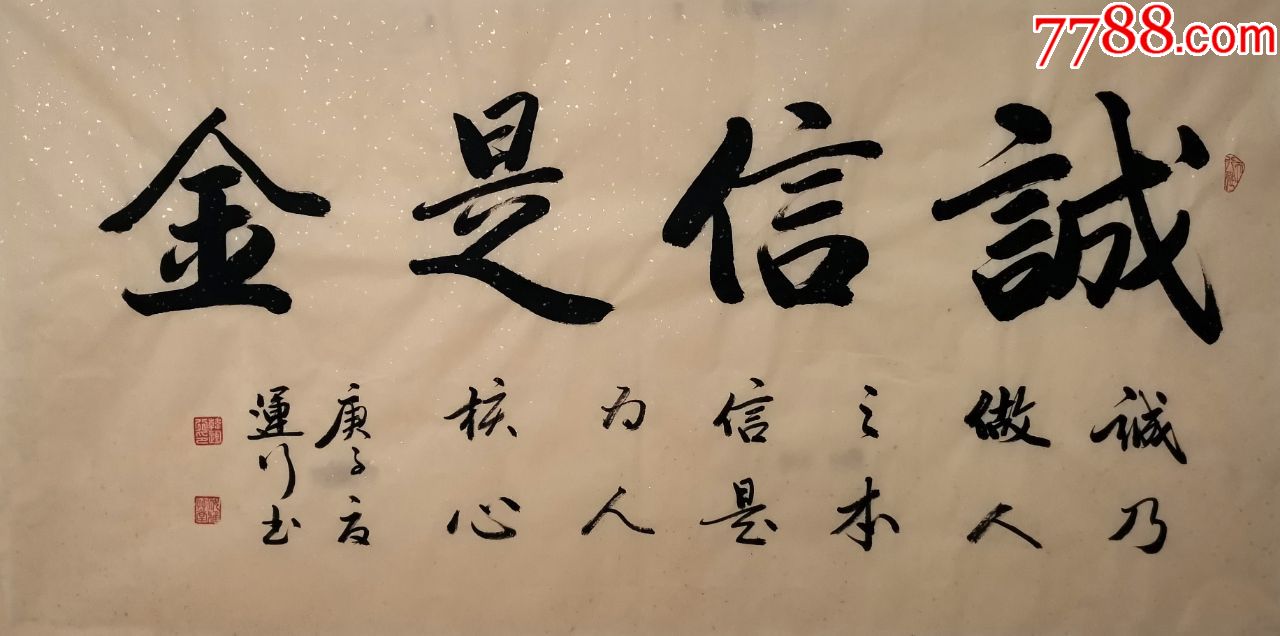 7788.com
誠信是金
誠乃
做人
之本
信是
为人
核心
庚子夏
運行书